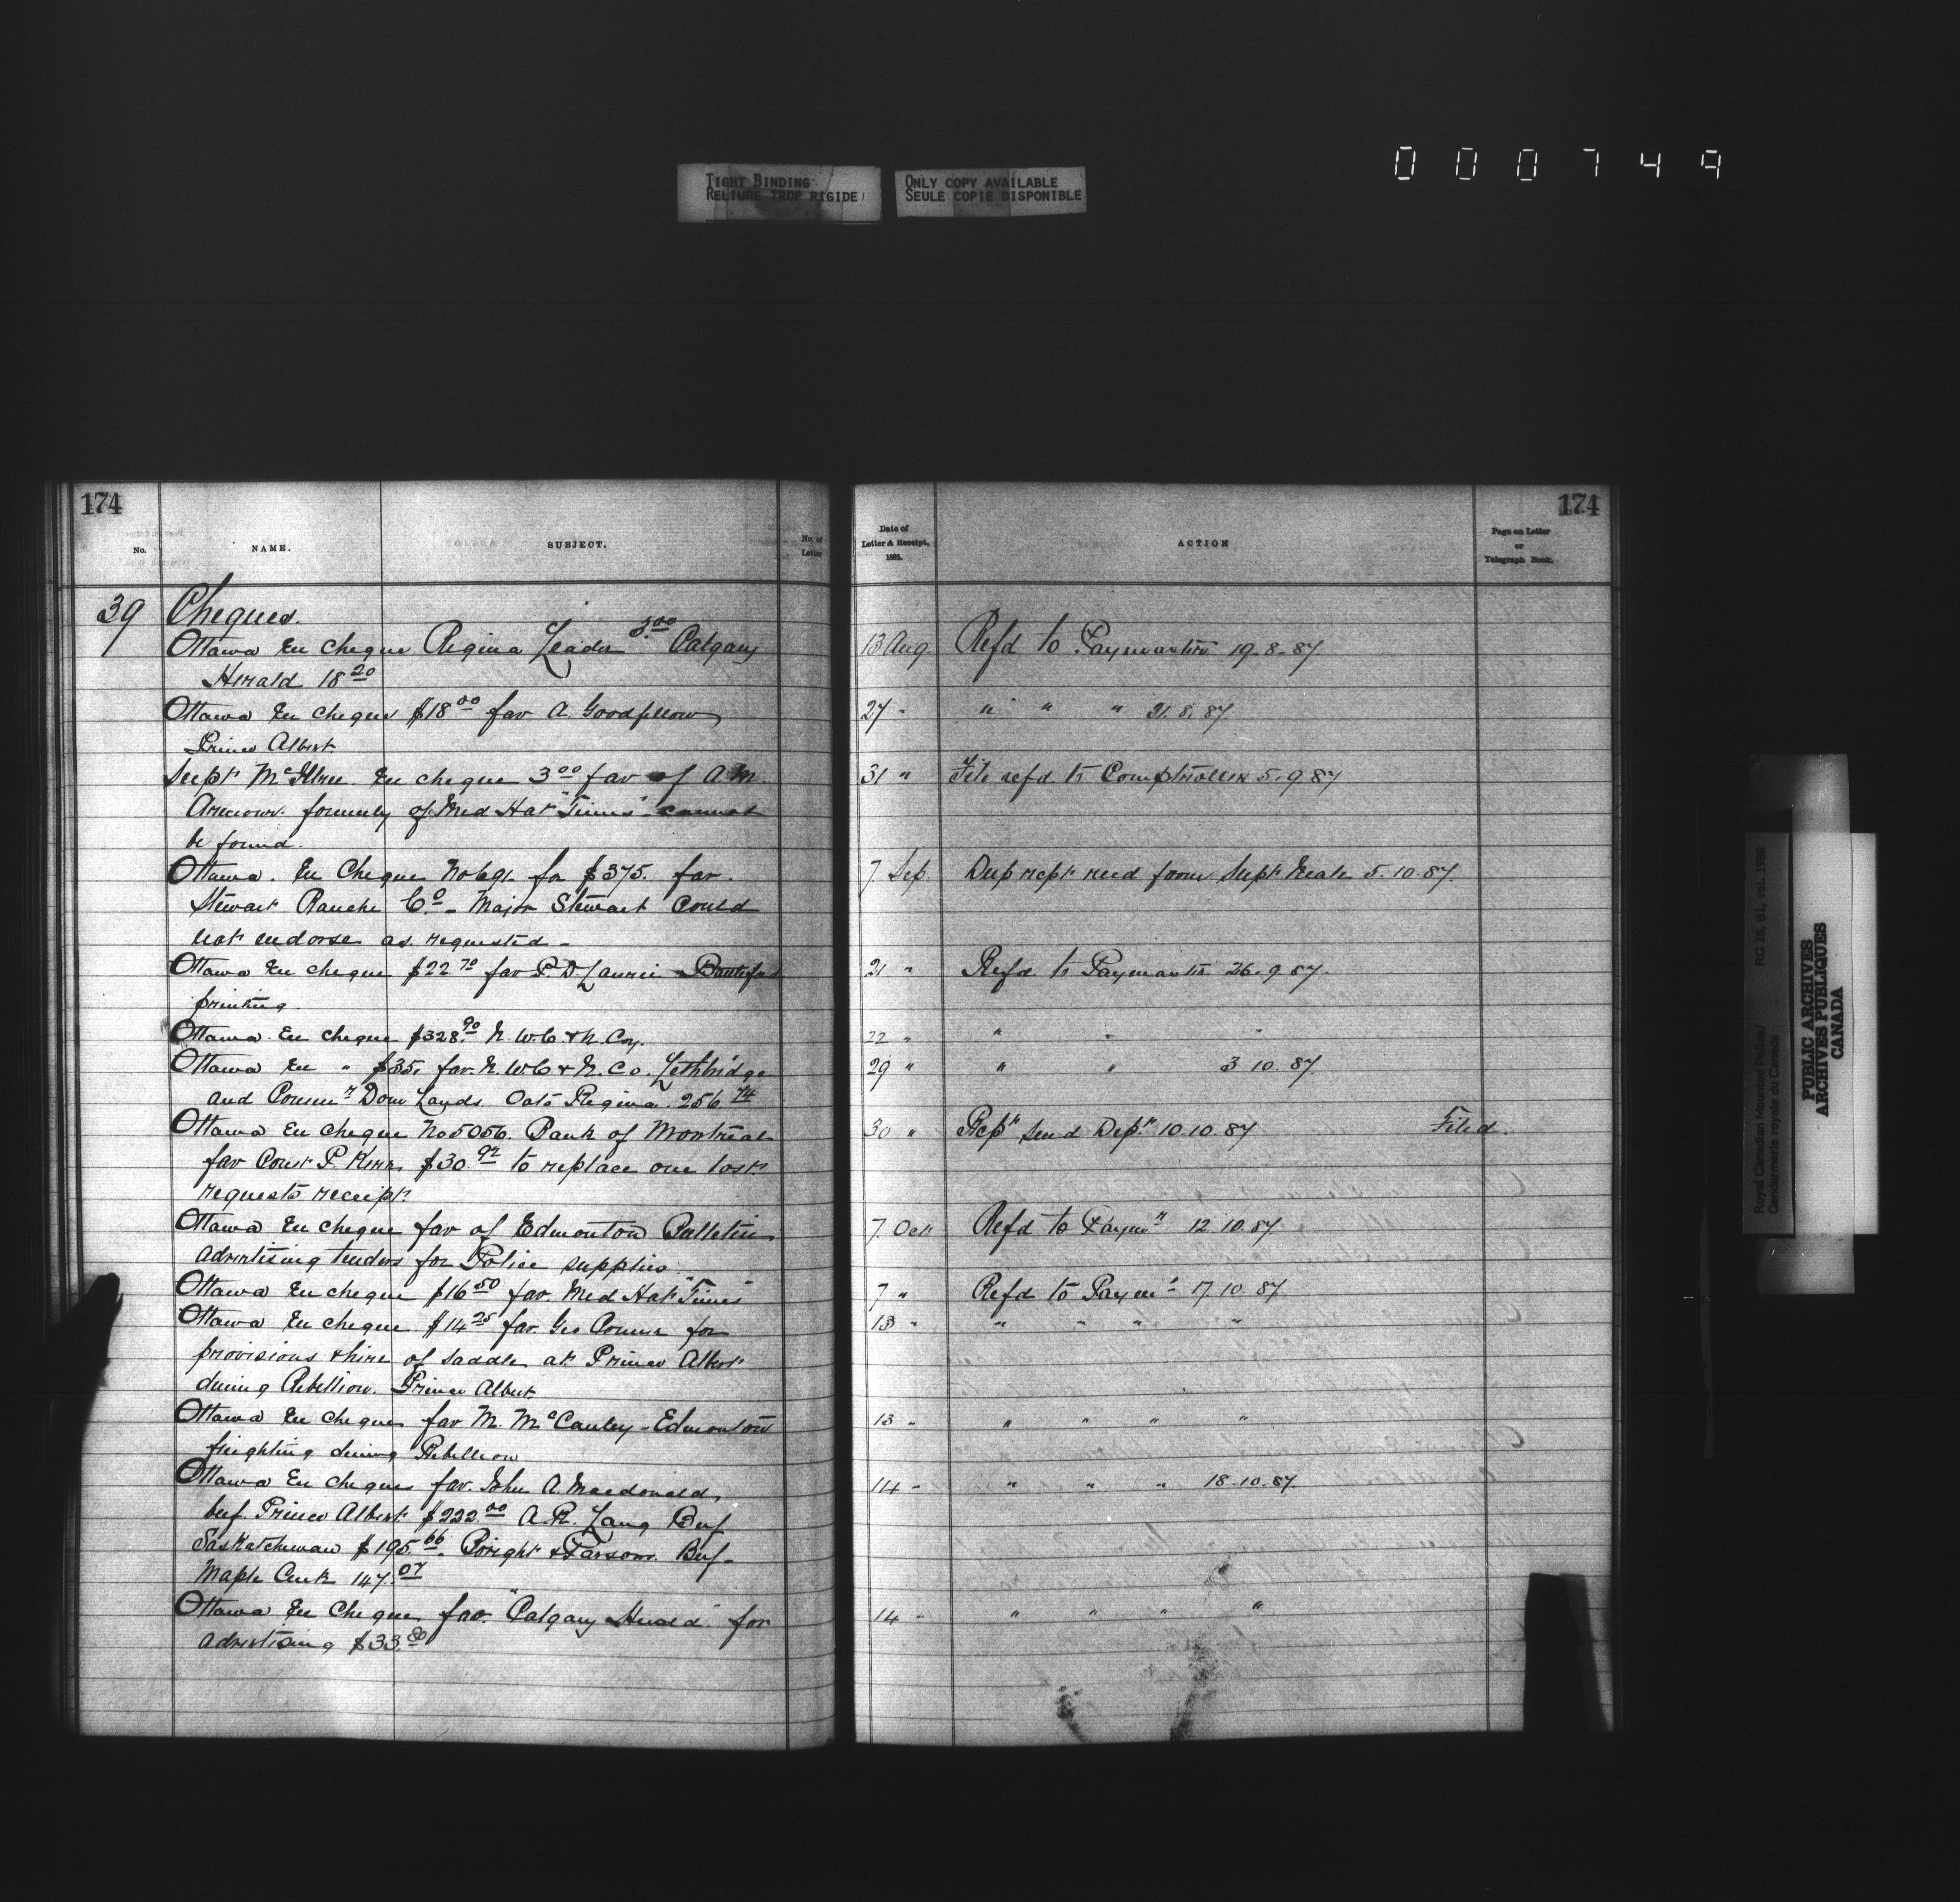 000749
TIGHT BINDING
RELIURE TROP RIGIDE
ONLY COPY AVAILABLE
SEULE COPIE DISPONIBLE
174
No.
NAME.
SUBJECT.
No. of
Letter
39 Cheques.
Ottawa En cheque Regina Leader 5.00 Calgary
Herald 18 20
Ottawa En cheque $18 00 fav A. Goodfellow
Prince Albert
Supt McIllree. En cheque 3 00 fav of A.M.
formerly of Med Hat "Times" cannot
be found.
Ottawa. En Cheque No 691. for $375. fav.
Stewart Ranche Co. - Major Stewart could
not endorse as requested -
Ottawa En cheque $22 70 fav P. D. Laurie Battleford
printing.
Ottawa. En cheque $328. 90 N. W. C. & N. Coy.
Ottawa En " $35. fav. N. W C & N. Co. Lethbridge
and Commr Dom Lands. Oats Regina. 256 74
Ottawa En cheque No 5056. Bank of Montreal
fav Const P. Kerr, $30. 92 to replace one lost
requests receipt.
Ottawa En cheque fav of Edmonton Bulletin
advertising tenders for Police supplies.
Ottawa En cheque $16 50 fav. Med Hat "Times"
Ottawa En cheque $14 25 fav. Geo for
provisions & hire of saddle at Prince Albert
during Rebellion. Prince Albert
Ottawa En cheque fav M. McCauley - Edmonton
freighting during Rebellion
Ottawa En cheques fav. John A. Macdonald,
beef. Prince Albert $222. 00 A. R. Lang Beef
Saskatchewan $195. 66 & Parsons. Beef -
Maple Creek 147. 07
Ottawa En Cheque fav. "Calgary Herald" for
advertising $33. 80
174
Date of
Letter & Receipt,
1885.
ACTION
Page on Letter
or
Telegraph Book.
13 Aug. Refd to Paymaster 19-8-87
27 " " " " 31. 8. 87
31 " File refd to Comptroller 5. 9 87
7. Sep. Dup rept recd from Supt Neale 5. 10. 87.
21 " Refd to Paymaster 26. 9 87.
22 " " " "
29 " " " 3 10. 87.
30 " Send Dept 10. 10. 87 Filed.
7 Oct Refd to Paymr 12. 10. 87
7 " Refd to Paymr 17. 10. 87.
13 " " " " "
13 " " " " "
14 " " " " 18. 10. 87.
14 " " " " "
Royal Canadian Mounted Police/ RG 18, B1, vol. 1988
Gendarmerie royale du Canada
PUBLIC ARCHIVES
ARCHIVES PUBLIQUES
CANADA